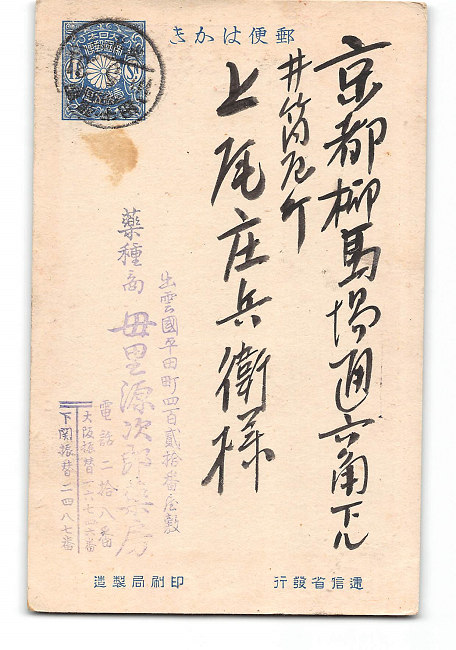 郵便はかき
京都柳馬場通六角下ル
井筒屋ケ
上尾庄兵衛様
出雲國平田町四百貳拾番屋敷
薬種商 毋里源次郎薬房
電話二十八番
大阪振替二六七二六番
下関振替二四八七番
印刷局製造
逓信省發行